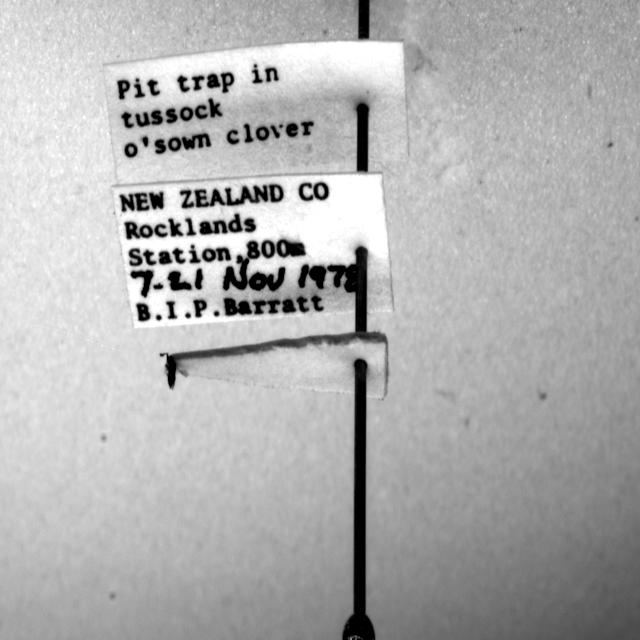 Pit trap in
tussock
o'sown clover
NEW ZEALAND CO
Rocklands
Station,800m
7-21 Nov 1978
B.I.P.Barratt